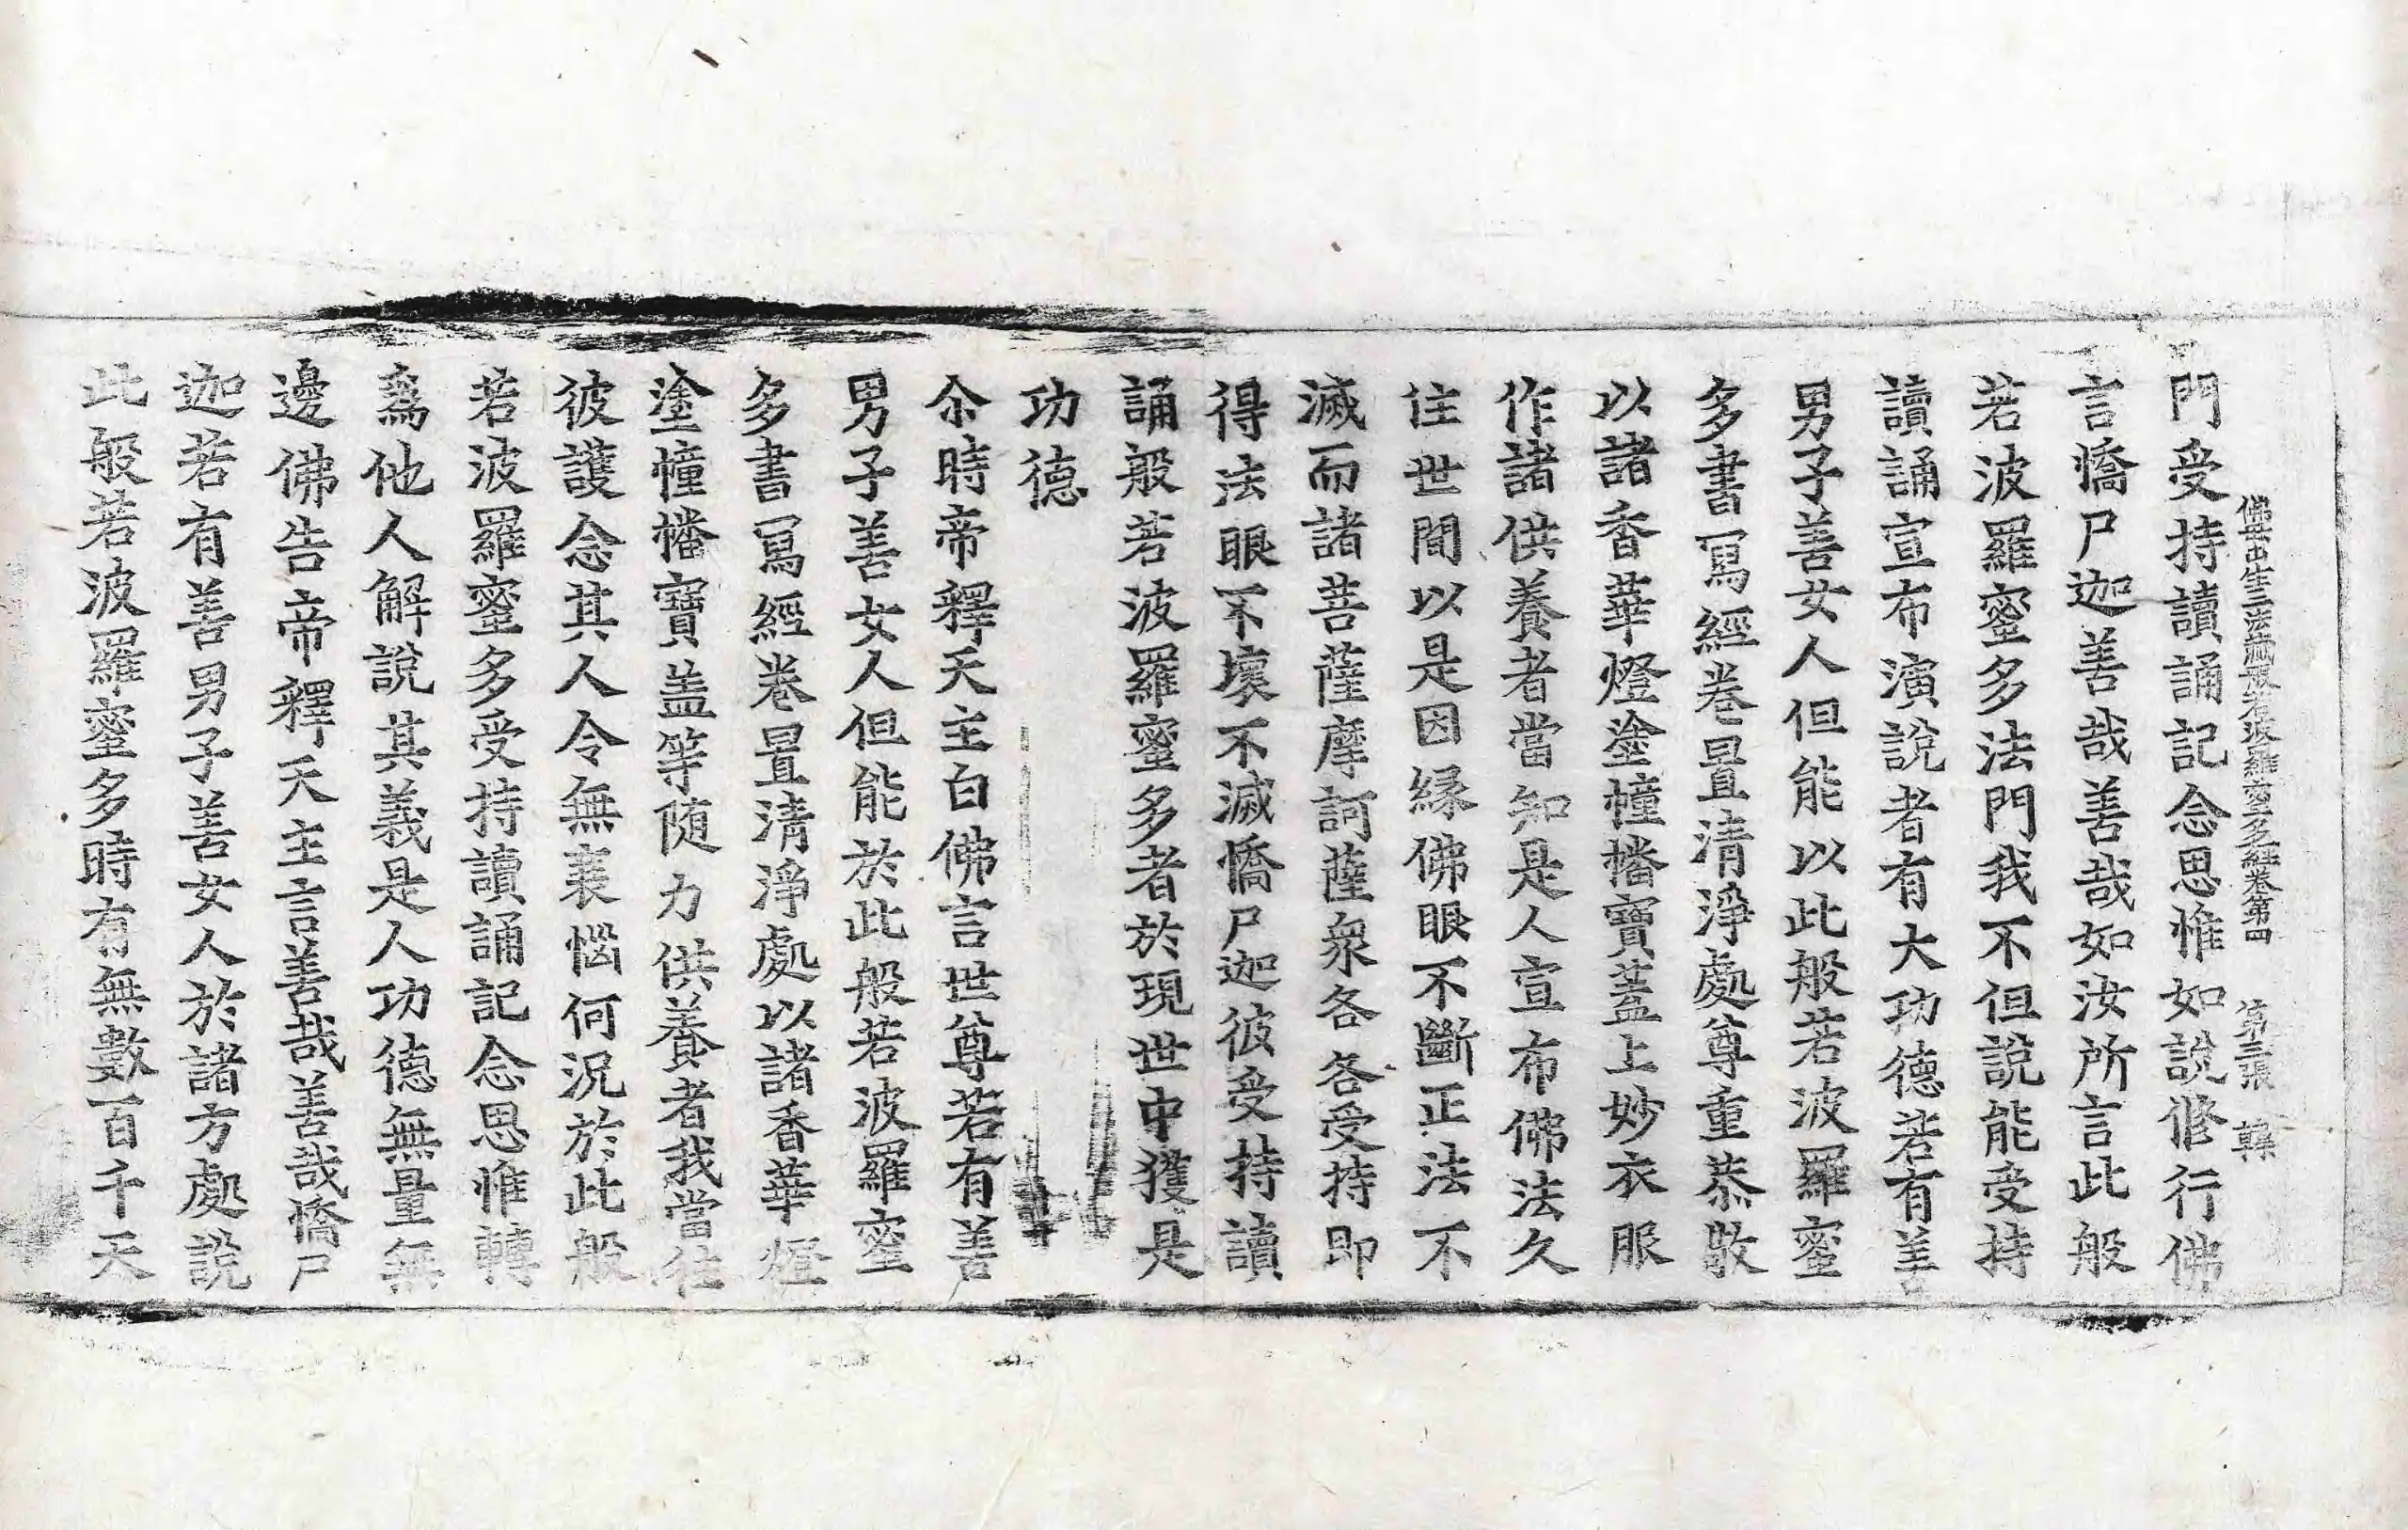 佛母出生三法藏般若波羅蜜多經卷第四　第三張　韓
門受持讀誦記念思惟如說修行佛
言憍尸迦善哉善哉如汝所言此般
若波羅蜜多法門我不但說能受持
讀誦宣布演說者有大功德若有善
男子善女人但能以此般若波羅蜜
多書寫經卷置清淨處尊重恭敬
以諸香華燈塗幢幡寶蓋上妙衣服
作諸供養者當知是人宣布佛法久
住世間以是因緣佛眼不斷正法不
滅而諸菩薩摩訶薩衆各各受持即
得法眼不壞不滅憍尸迦彼受持讀
誦般若波羅蜜多者於現世中獲是
功德
尒時帝釋天主白佛言世尊若有善
男子善女人但能於此般若波羅蜜
多書寫經卷置清淨處以諸香華燈
塗幢幡寶盖等随力供養者我當往
彼護念其人令無衰惱何況於此般
若波羅蜜多受持讀誦記念思惟轉
爲他人解說其義是人功德無量無
邊佛告帝釋天主言善哉善哉憍尸
迦若有善男子善女人於諸方處說
此般若波羅蜜多時有無數百千天